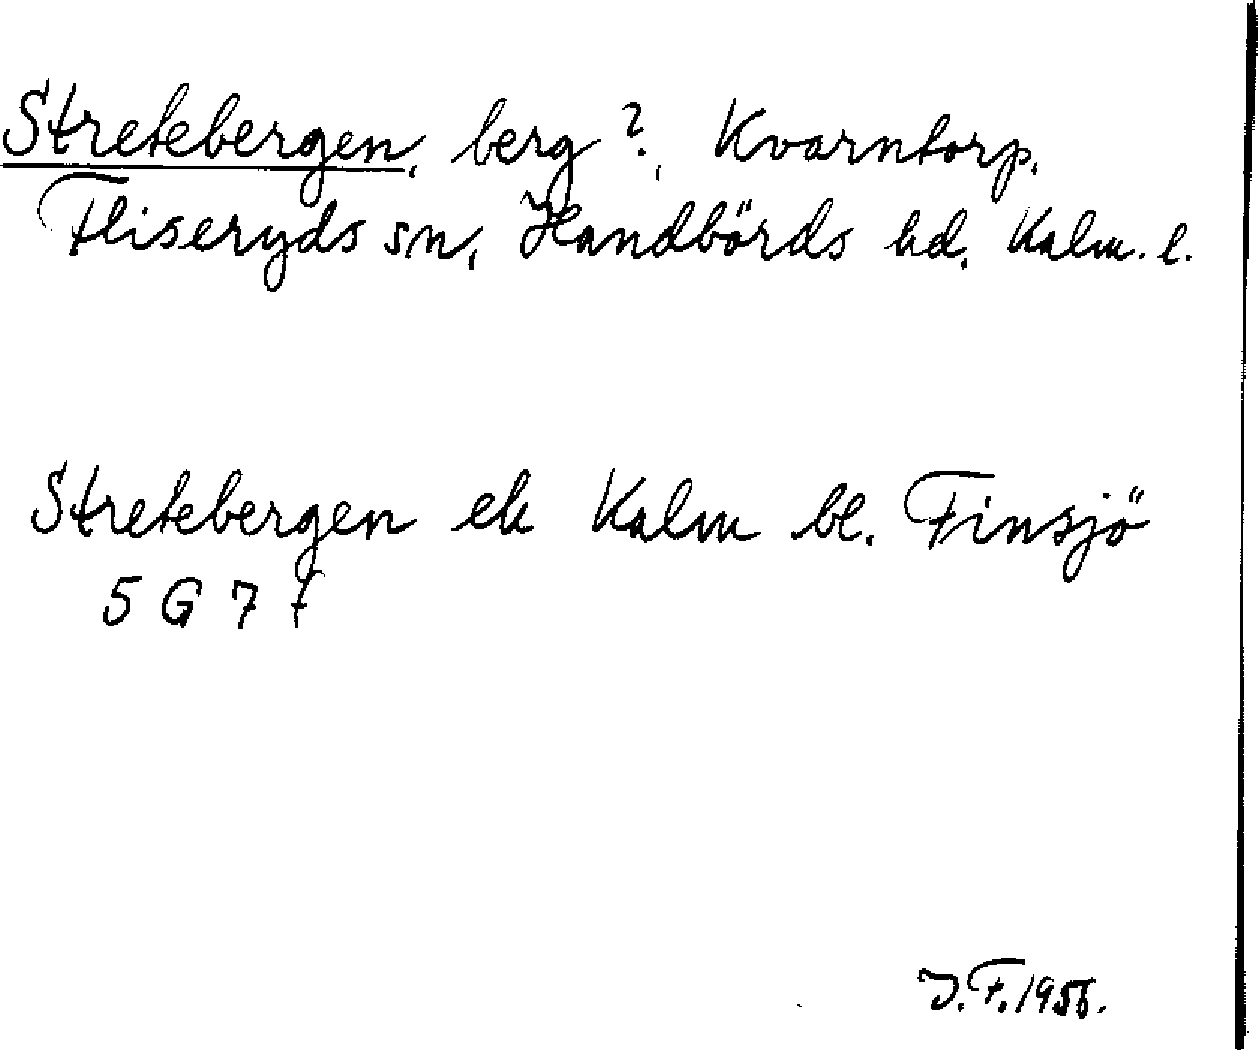 Stretebergen, berg?, Kvarntorp,
Fliseryds sn, Handbörds hd, Kalm. l.
Stretebergen ek Kalm bl. Finsjö
5 G 7 f
J.F. 1956.